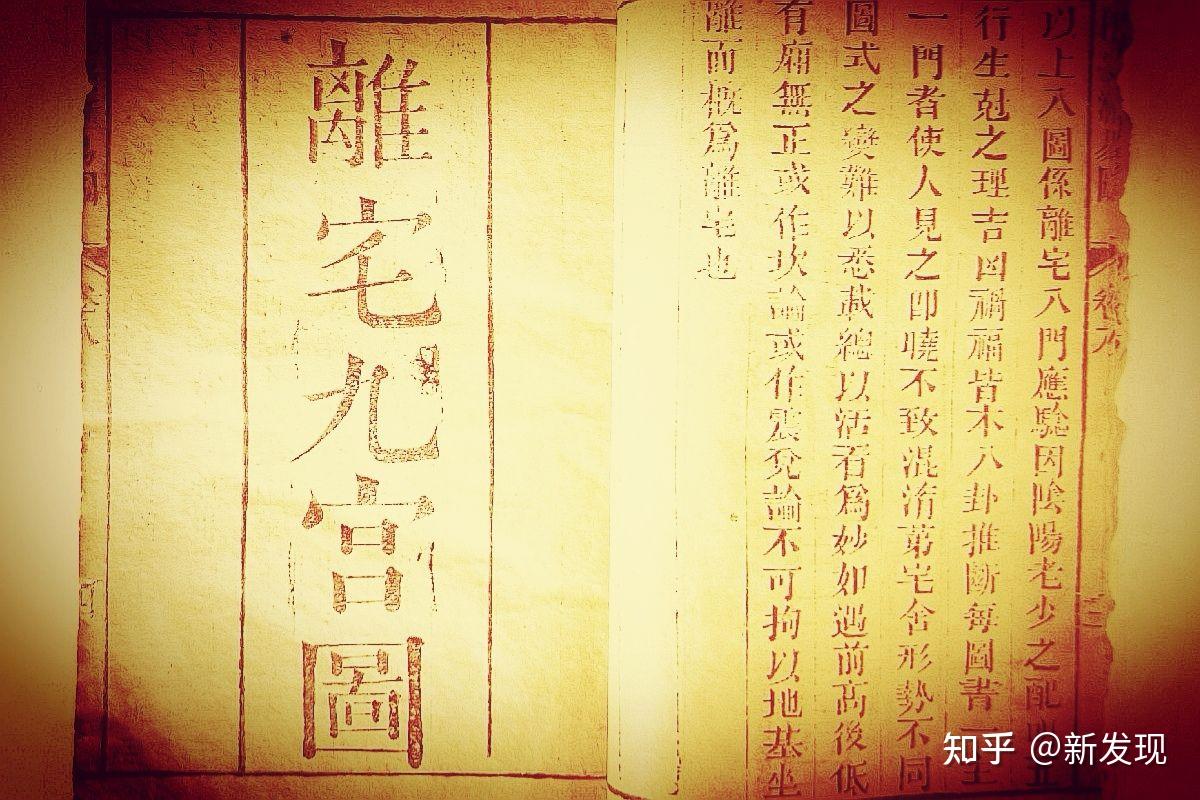 以上八圖係離宅八門應騐因陰陽老少之配
行生尅之理吉凶禍福皆本八卦推斷每圖書
一門者使人見之卽曉不致混淆第宅舍形勢不同
圖式之變難以悉載總以活看爲妙如遇前高後低
有廟無正或作坎論或作震兌論不可拘以地基坐
離而概爲離宅也
離宅九宮圖
知乎 @新发现